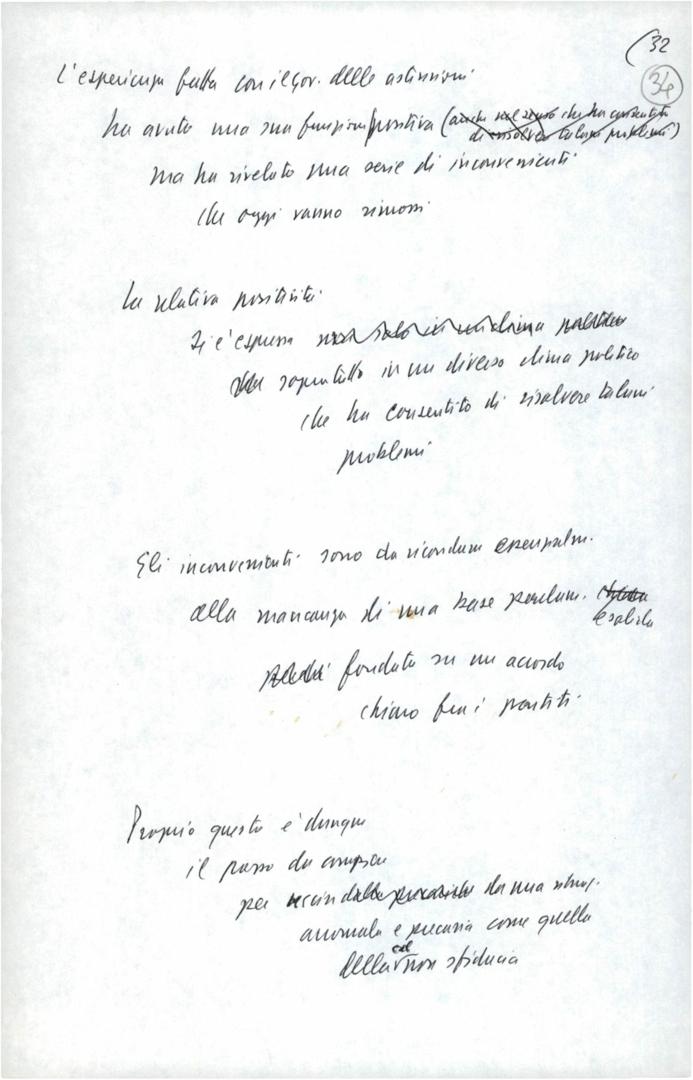 (32
34
L'esperienza fatta con il gov. delle astensioni
ha avuto una sua funzione positiva (anche nel senso che ha consentito
di risolvere taluni problemi)
ma ha rivelato una serie di inconvenienti
che oggi vanno rimossi
La relativa positività
si è espressa non solo in un clima politico
soprattutto in un diverso clima politico
che ha consentito di risolvere taluni
problemi
Gli inconvenienti sono da ricondurre essenzialm.
alla mancanza di una base parlam. chiara
e solida
perché fondata su un accordo
chiaro fra i partiti
Proprio questo è dunque
il passo da compiere
per uscire dalla precarietà da una situaz.
anomala e precaria come quella
della cd non sfiducia